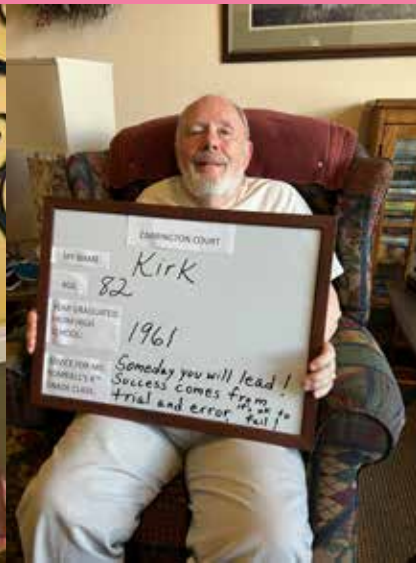 CARRINGTON COURT
MY NAME:
Kirk
AGE:
82
YEAR GRADUATED
FROM HIGH
SCHOOL:
1961
ADVICE FOR MRS.
8TH
GRADE CLASS:
Someday you will lead!
Success comes from
trial and error, it's ok to
fail!